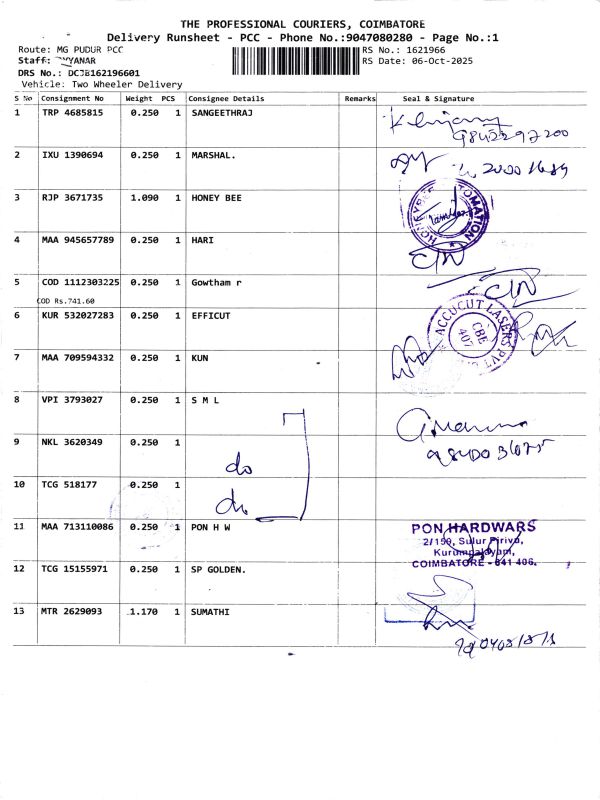 THE PROFESSIONAL COURIERS, COIMBATORE
Delivery Runsheet - PCC - Phone No.:9047080280 - Page No.:1
Route: MG PUDUR PCC RS No.: 1621966
Staff: RS Date: 06-Oct-2025
DRS No.: DCJB162196601
Vehicle: Two Wheeler Delivery
S No Consignment No Weight PCS Consignee Details Remarks Seal & Signature
1 TRP 4685815 0.250 1 SANGEETHRAJ
2 IXU 1390694 0.250 1 MARSHAL.
3 RJP 3671735 1.090 1 HONEY BEE
HONEYBEE AUTOMATION
4 MAA 945657789 0.250 1 HARI
5 COD 1112303225 0.250 1 Gowtham r
COD Rs.741.60
6 KUR 532027283 0.250 1 EFFICUT
ACCUCUT LASERS PVT
CBE
407
7 MAA 709594332 0.250 1 KUN
8 VPI 3793027 0.250 1 S M L
9 NKL 3620349 0.250 1
do
10 TCG 518177 0.250 1
do
11 MAA 713110086 0.250 1 PON H W
PON HARDWARS
2/159, Sulur Pirivu,
Kurumpalayam,
COIMBATORE - 641 406.
12 TCG 15155971 0.250 1 SP GOLDEN.
13 MTR 2629093 1.170 1 SUMATHI